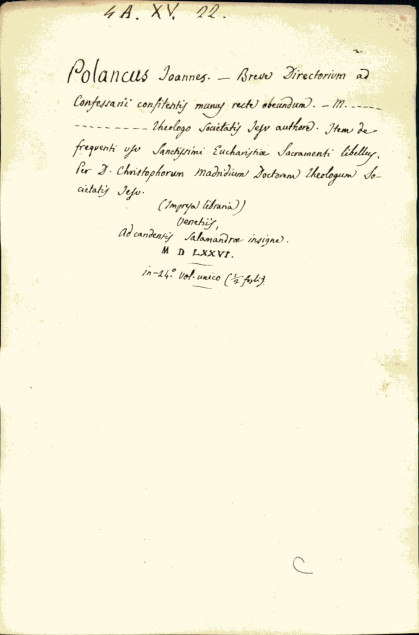 4 A. XV. 22.
Polancus Joannes. — Breve Directorium ad
Confessarii confitentis munus recte obeundum. — M. - - - - -
- - - - - - - - - - Theologo Societatis Jesu authore. Item de
frequenti usu Sanctissimi Eucharistiæ Sacramenti libellus.
Per D. Christophorum Madridium Doctorem Theologum So-
cietatis Jesu.
(Impresa libraria)
Venetiis,
Ad candentis Salamandræ insigne.
M D LXXVI.
in-24.º vol. unico (½ fogli)
C